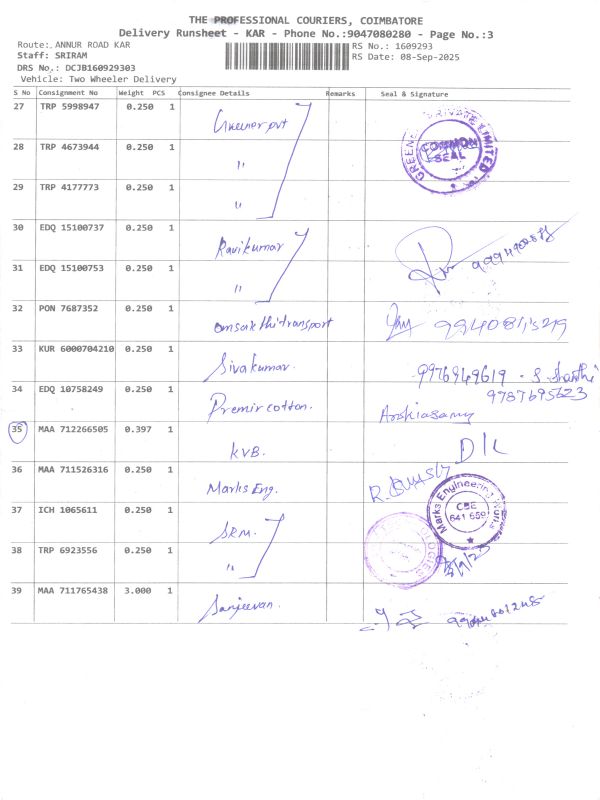 THE PROFESSIONAL COURIERS, COIMBATORE
Delivery Runsheet - KAR - Phone No.:9047080280 - Page No.:3
Route: ANNUR ROAD KAR
Staff: SRIRAM
DRS No.: DCJB160929303
Vehicle: Two Wheeler Delivery
RS No.: 1609293
RS Date: 08-Sep-2025
S No Consignment No Weight PCS Consignee Details Remarks Seal & Signature
27 TRP 5998947 0.250 1 Greener pvt
28 TRP 4673944 0.250 1 "
29 TRP 4177773 0.250 1 "
GREENE PRIVATE LIMITED
COMMON
SEAL
30 EDQ 15100737 0.250 1 Ravikumar
31 EDQ 15100753 0.250 1 "
32 PON 7687352 0.250 1 omsakthi transport
33 KUR 6000704210 0.250 1 Sivakumar. 9976949619 - S. Shanthi
34 EDQ 10758249 0.250 1 Premir cotton. 9787695623
35 MAA 712266505 0.397 1 KVB. D/L
36 MAA 711526316 0.250 1 Marks Eng.
Marks Engineering Works
CBE
641 659
37 ICH 1065611 0.250 1 SRM.
38 TRP 6923556 0.250 1 "
39 MAA 711765438 3.000 1 Sanjeevan.